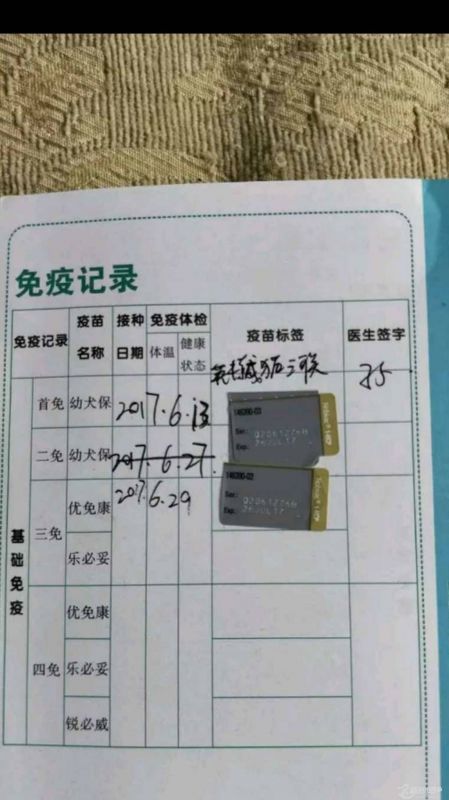 免疫记录
免疫记录 疫苗名称 接种日期 免疫体检 疫苗标签 医生签字
体温 健康状态
基础免疫
首免 幼犬保 2017.6.13
146390-03
Ser: 02061226B
Exp: 26JUL17
二免 幼犬保 2017.6.27
2017.6.29
146390-03
Ser: 02061226B
Exp: 26JUL17
三免 优免康
乐必妥
四免 优免康
乐必妥
锐必威